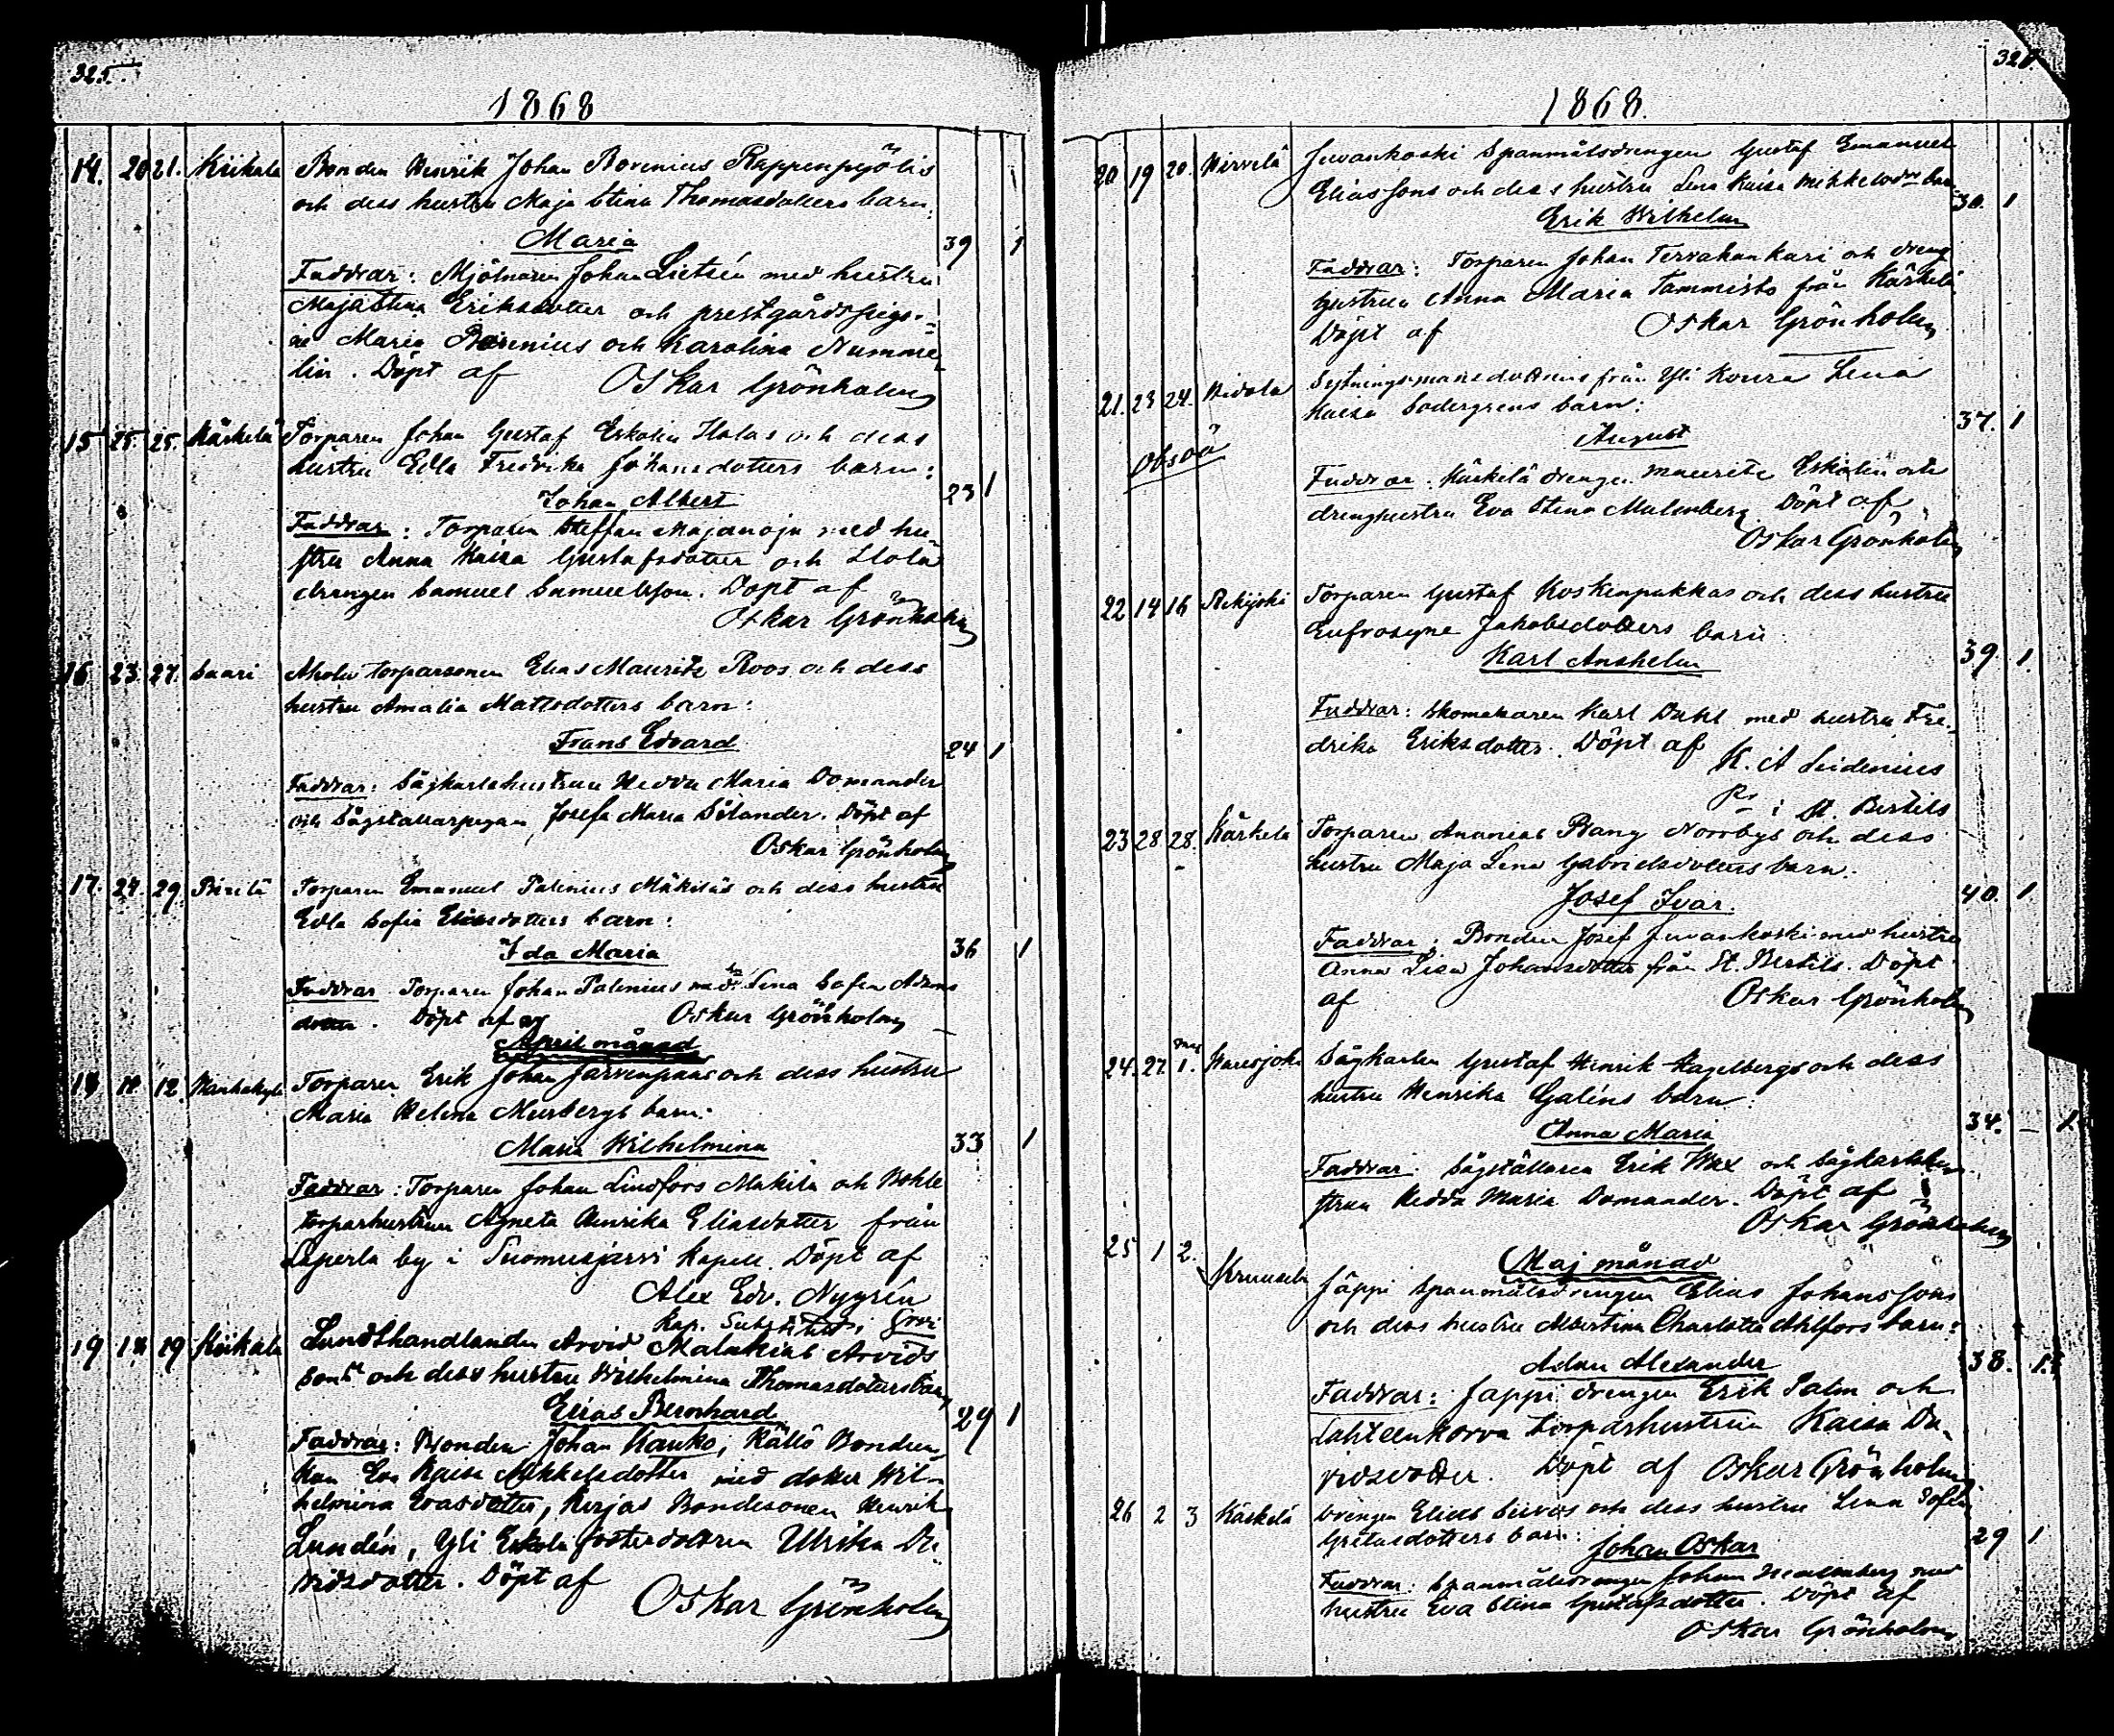 325.
1868
14. 20 21. Kiikala Bonden Henrik Johan Borenius Rappenpyölis
och dess hustru Maja Stina Thomasdotters barn:
Maria 39 1
Faddrar: Mjölnaren Johan Lietsén med hustru
Maja Stina Eriksdotter och prestgårdspigor-
na Maria Borenius och Karolina Numme-
lin. Döpt af Oskar Grönholm
15 25. 25. Kärkelä Torparen Johan Gustaf Eskolin Italas och dess
hustru Edla Fredrika Johansdotters barn:
Johan Albert 23 1
Faddrar: Torparen Steffan Majanoja med hu-
stru Anna Kaisa Gustafsdotter och
drengen Samuel Samuelsson. Döpt af
Oskar Grönholm
16 23. 27. Saari Ahola torparsonen Elias Maurits Roos och dess
hustru Amalia Mattsdotters barn:
Frans Edvard 24 1
Faddrar: Sågkarlshustrun Hedda Maria Domander
och Sågställarpigan Josefa Maria Sölander. Döpt af
Oskar Grönholm
17. 24. 29. Pirilä Torparen Emanuel Palenius Mäkiläs och dess hustru
Edla Sofia Eliasdotters barn:
Ida Maria 36 1
Faddrar Torparen Johan Palenius med Lena Sofia Adams
dotter. Döpt af Oskar Grönholm
April månad
18 11. 12. Wanhakylä Torparen Erik Johan Järvenpääs och dess hustru
Maria Helena Mursbergs barn:
Maria Wilhelmina 33 1
Faddrar: Torparen Johan Lindfors Mäkilä och Bohle
torparhustrun Agneta Henrika Eliasdotter från
Laperla by i Suomusjärvi Kapell. Döpt af
Alex Edv. Nygrén
Kap. Substitut i
19 18 19 Kiikala Landthandlanden Arvid Malakias Arvids
sons och dess hustru Wilhelmina Thomasdotters barn
Elias Bernhard 29 1
Faddrar: Bonden Johan Kauko, Källö Bondens
Kan Eva Kaisa Mikkelsdotter med dotter Wil-
helmina Evasdotter, Kerjas Bondesonen Henrik
Lundén, Yli Eskola fosterdottren Ulrika Da-
vidsdotter. Döpt af
Oskar Grönholm
326.
1868.
20 19 20. Hirvelä Juvankoski Spanmålsdrengen Gustaf Emanuel
Eliassons och dess hustru Lena Kaisa Mikkelsdrs barn
Erik Wilhelm 30. 1
Faddrar: Torparen Johan Tervahankari och dreng
hustrun Anna Maria Tammisto från Kärkelä
Döpt af Oskar Grönholm
21. 23 24. Hidola Sytningsmansdottrens från Yli Koura Lena
Kaisa Södergrens barn:
August 37. 1
Faddrar: Kärkelä drengen Maurits Eskolin och
drenghustru Eva Stina Malmberg Döpt af
Oskar Grönholm
22 14 16 Rekijoki Torparen Gustaf Koskenpukkas och dess hustru
Eufrosyne Jakobsdotters barn
Karl Anshelm 39. 1.
Faddrar: Skomakaren Karl Dahl med hustru Fre-
drika Eriksdotter. Döpt af
K. A Leidenius
i St. Bertils
23 28 28. Kärkelä Torparen Ananias Rang Norrbys och dess
hustru Maja Lena Gabrielsdotters barn:
Josef Ivar. 40. 1.
Faddrar: Bonden Josef Juvankoski med hustru
Anna Lisa Johansdotter från St. Bertils. Döpt
af Oskar Grönholm
24. 27. Maj 1. Haresjoki Sågkarlen Gustaf Henrik Hagelbergs och dess
hustru Henrika Galéns barn:
Anna Maria 34. – 1.
Faddrar: Sågställaren Erik Wax och Sågkarlshu-
strun Hedda Maria Domander. Döpt af
Oskar Grönholm
Maj månad
25 1 2. Kruusila Jäppi Spanmålsdrengen Elias Johanssons
och dess hustru Albertina Charlotta Ahlfors barn:
Adam Alexander 38. 1.
Faddrar: Jäppi drengen Erik Palm och
Lahteenkorva torparhustrun Kaisa Da-
vidsdotter. Döpt af Oskar Grönholm
26 2 3 Kärkelä Drengen Elias Sivers och dess hustru Lena Sofia
Gretasdotters barn:
Johan Oskar 29 1
Faddrar: Spanmålsdrengen Johan med
hustru Eva Stina Gustafsdotter. Döpt af
Oskar Grönholm